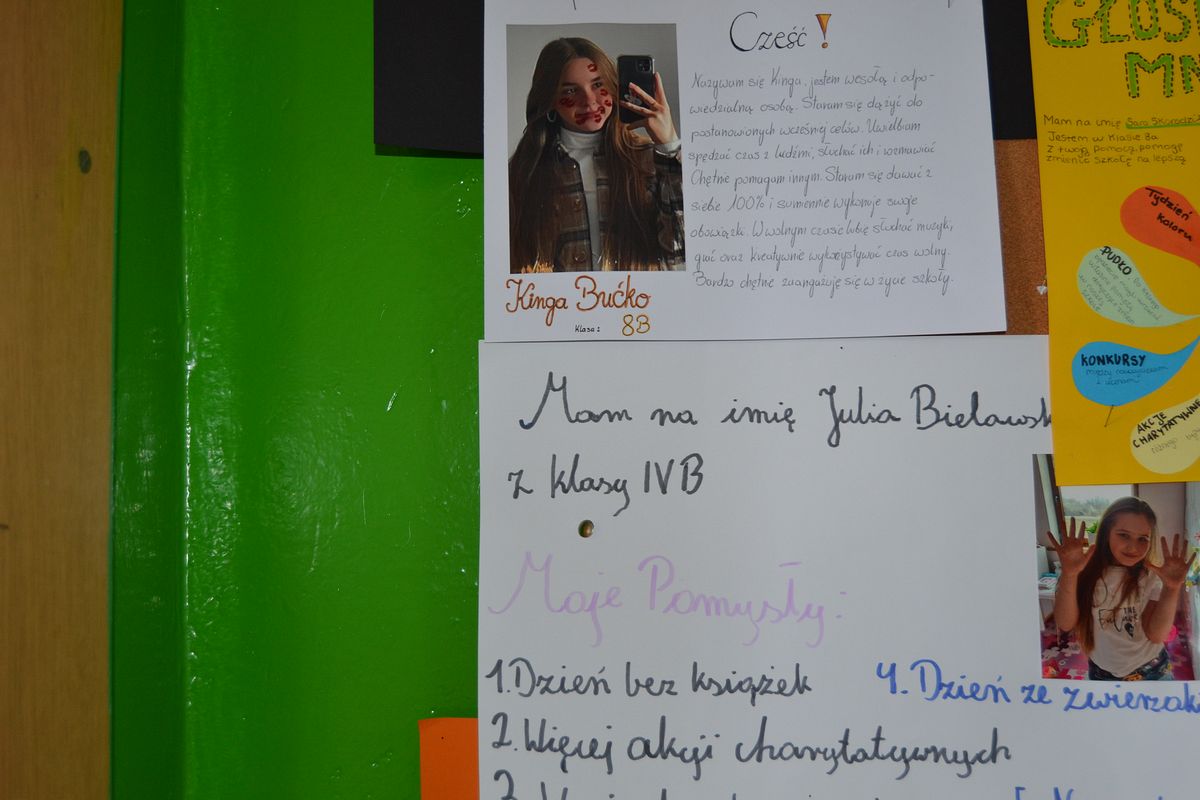 Cześć!
Nazywam się Kinga, jestem wesołą i odpo-
wiedzialną osobą. Staram się dążyć do
postanowionych wcześniej celów. Uwielbiam
spędzać czas z ludźmi, słuchać ich i rozmawiać
Chętnie pomagam innym. Staram się dawać z
siebie 100% i sumiennie wykonuje swoje
obowiązki. W wolnym czasie lubię słuchać muzyki,
grać oraz kreatywnie wykorzystywać czas wolny.
Bardzo chętnie zaangażuję się w życie szkoły.
Kinga Bućko
Klasa: 8B
Mam na imię Julia Bielawsk
z klasy IVB
Moje Pomysły:
1. Dzień bez książek
2. Więcej akcji charytatywnych
4. Dzień ze zwierzak
GŁOS
MN
Mam na imię Sara
Jestem w klasie 8a
Z twoją pomocą pomogę
zmienić szkołę na lepszą
Tydzień
koloru
PUDŁO
KONKURSY
między nauczycielami
i uczniami
AKCJE
CHARYTATYWNE